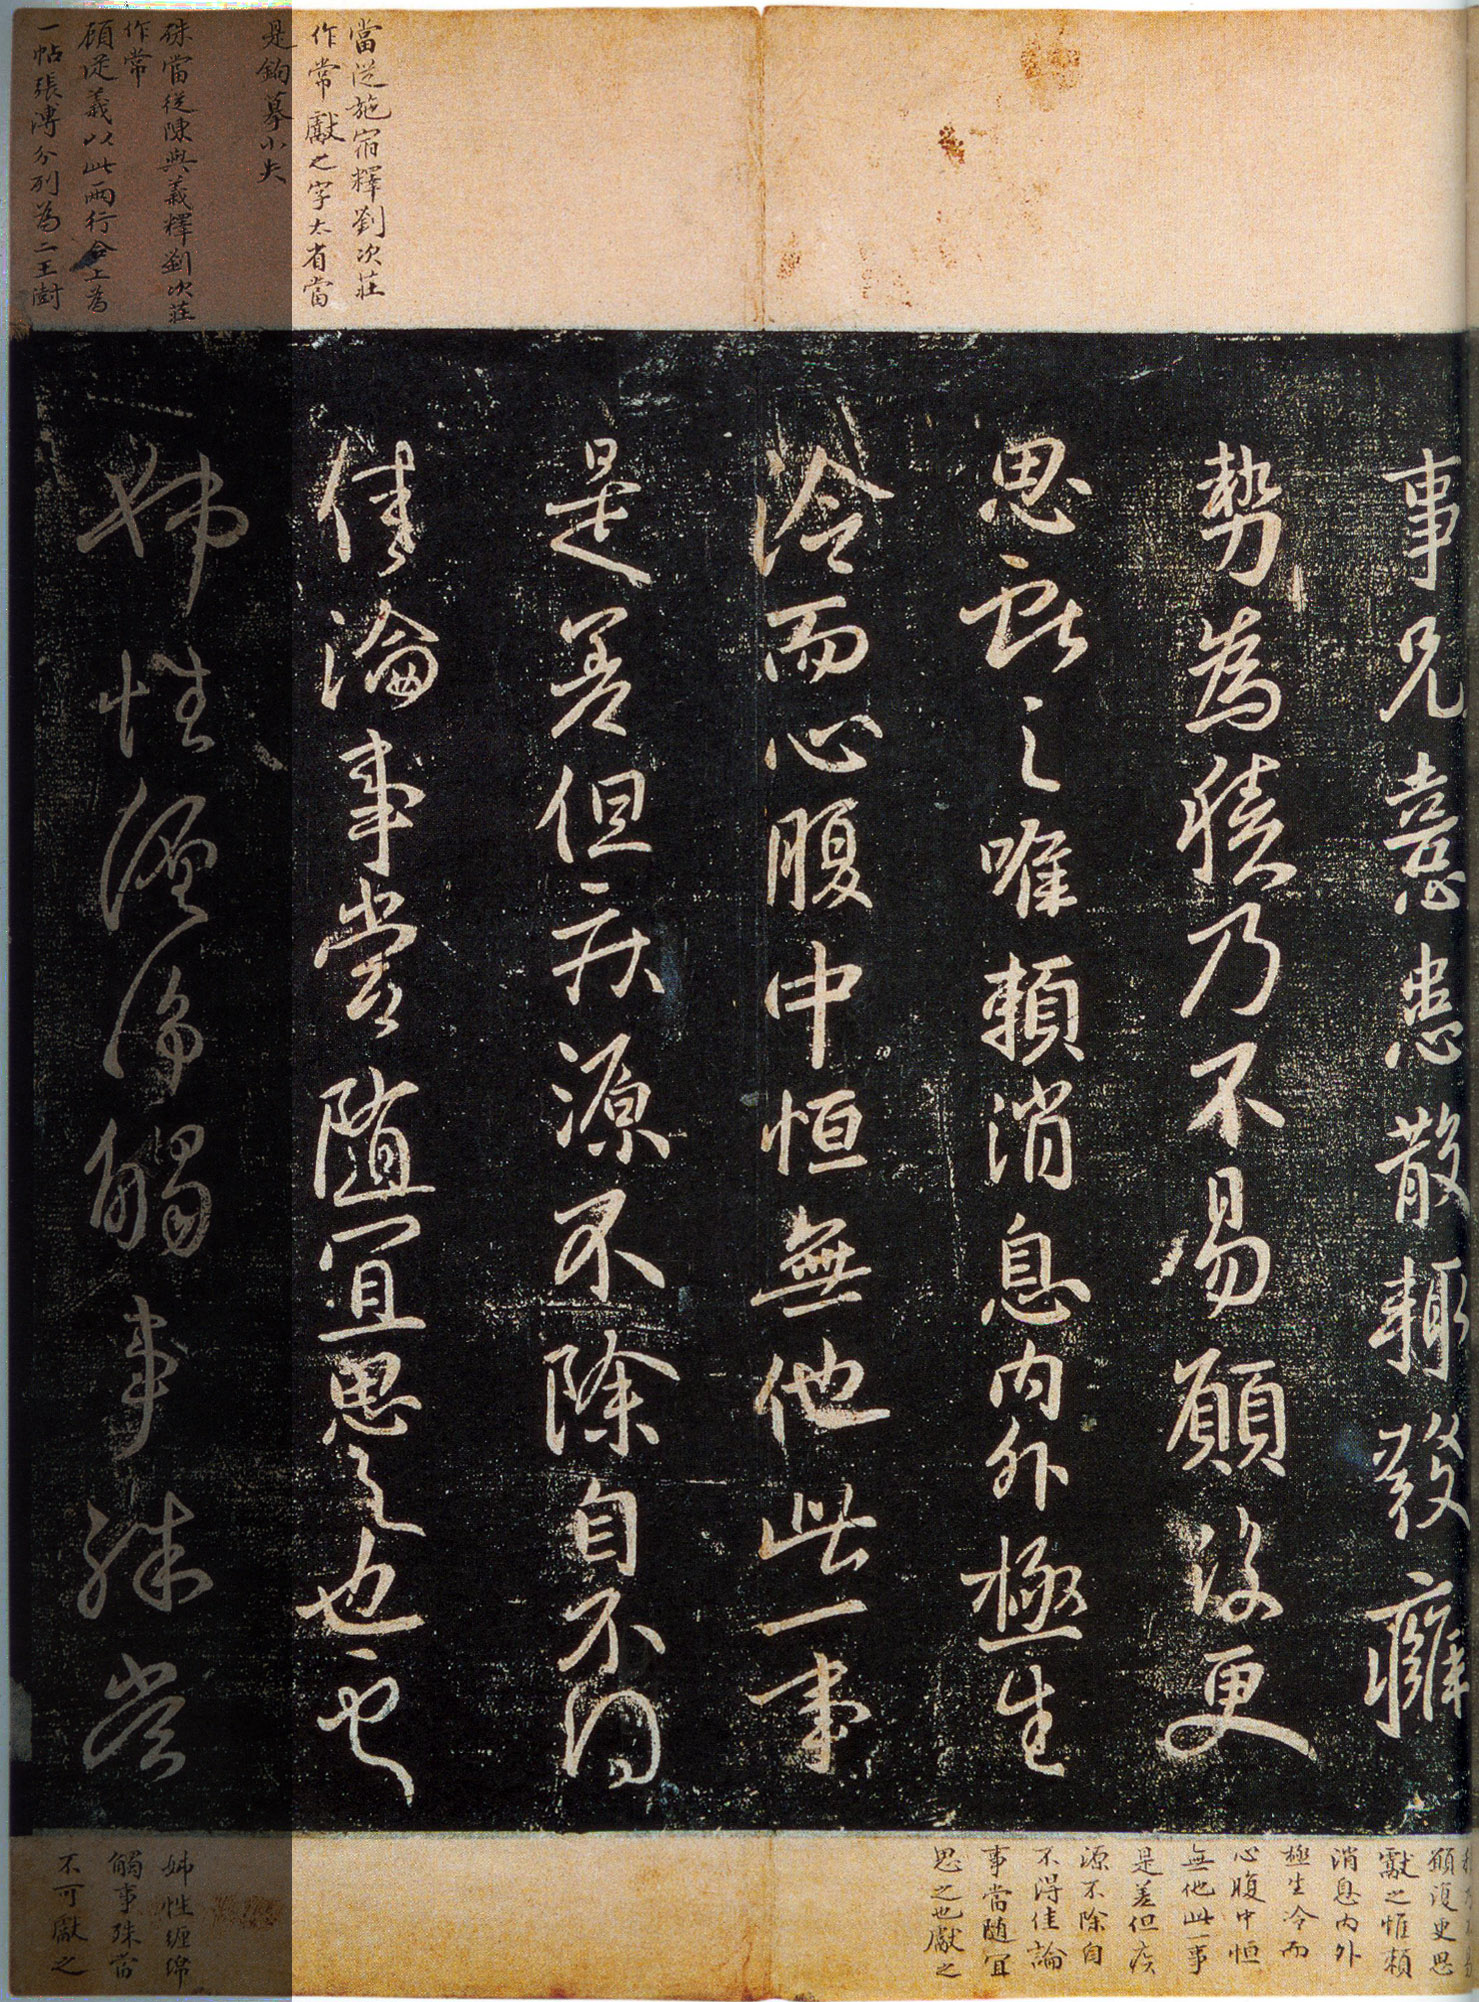 當從施宿釋劉次莊
作常獻之字太省當
是鉤摹小失
殊當從陳與義釋劉次莊
作常
顧從義以此兩行合上為
一帖張溥分列為二王澍
事兄憙患散輒發癰
勢為積乃不易願復更
思獻之唯賴消息內外極生
冷而心腹中恒無他此一事
是差但疾源不除自不得
佳論事當隨宜思之也獻之
姊性纏綿觸事殊當
願復更思
獻之惟賴
消息內外
極生冷而
心腹中恒
無他此一事
是差但疾
源不除自
不得佳論
事當隨宜
思之也獻之
姊性纏綿
觸事殊當
不可獻之